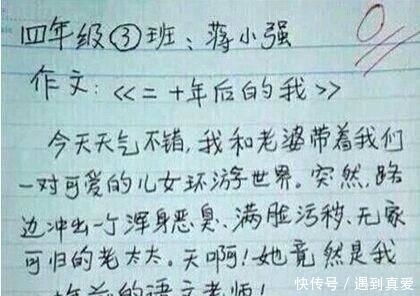 四年级③班：蒋小强
0
作文：<<二十年后的我>>
今天天气不错，我和老婆带着我们
一对可爱的儿女环游世界。突然，路
边冲出一个浑身恶臭、满脸污秽、无家
可归的老太太。天啊！她竟然是我
年前的语文老师！
快传号／遇到真爱